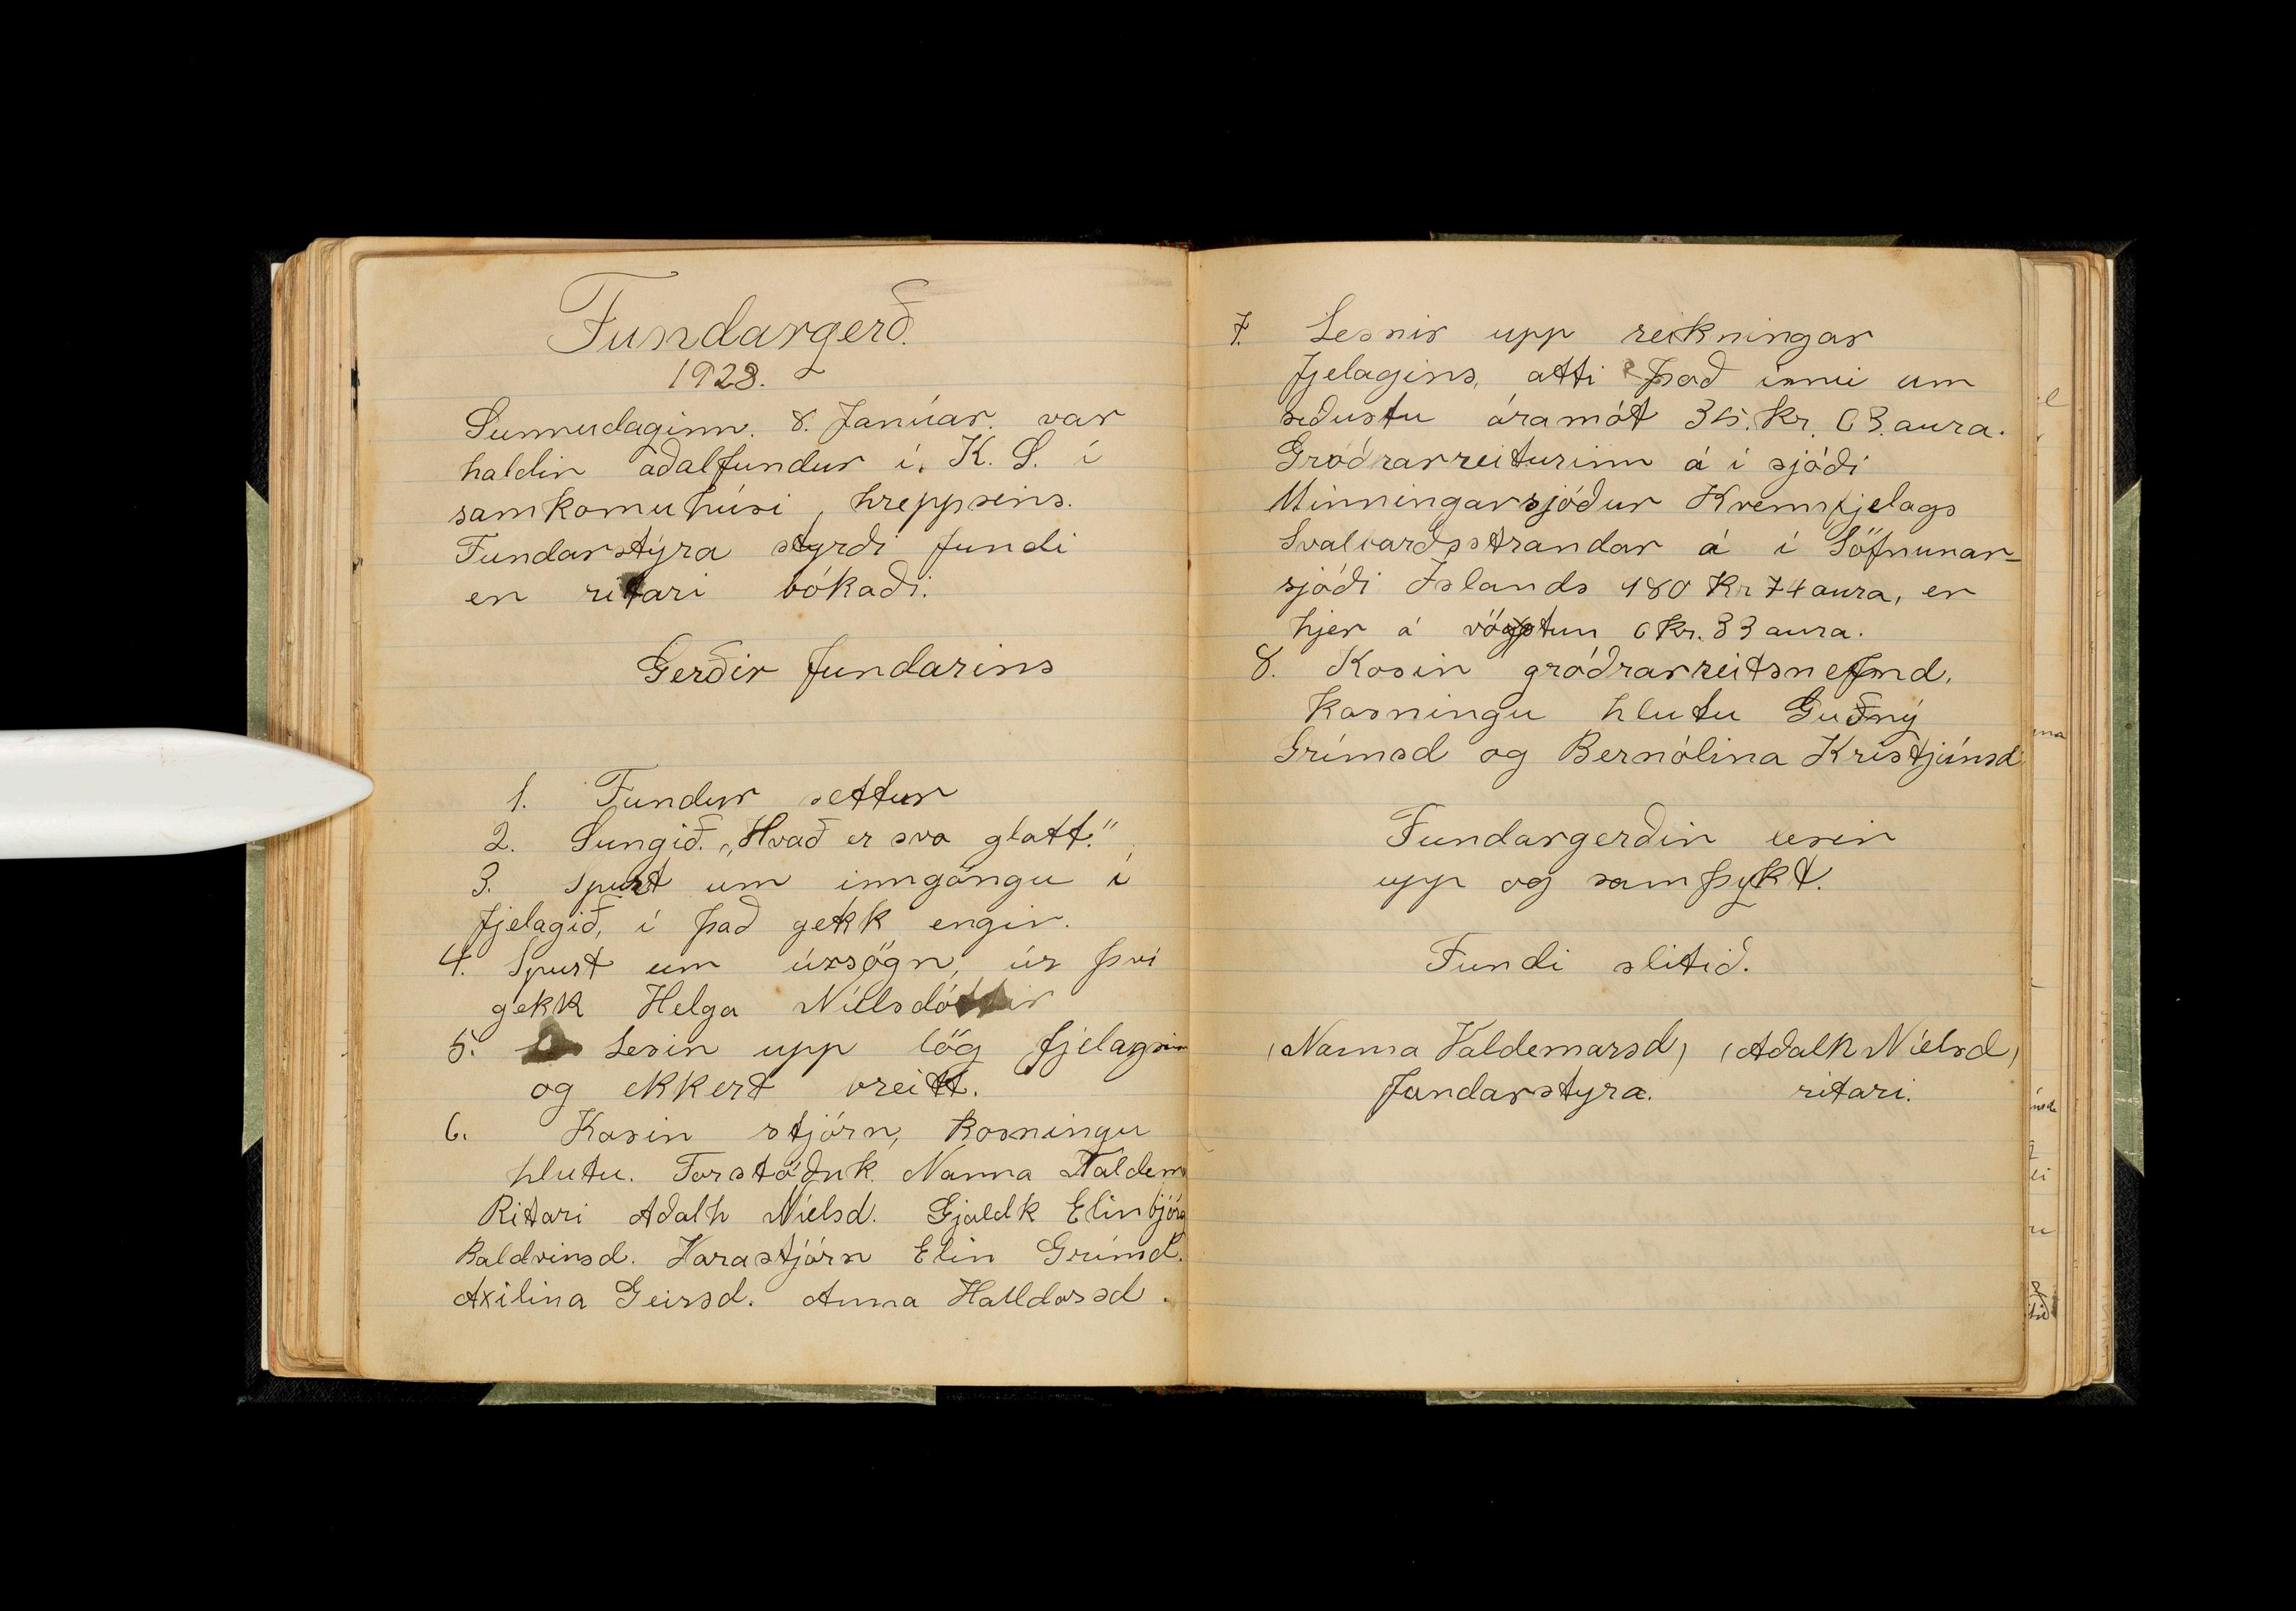 Fundargerð.
1928.
Sunnudaginn. 8. Janúar. var
haldin aðalfundur í. K. S. í
samkomuhúsi, hreppsins.
Fundarstýra styrði fundi
en ritari bókaði.
Gerðir fundarins
1. Fundur settur
2. Sungið. „Hvað er svo glatt."
3. Spurt um inngöngu í
fjelagið, í það gekk engin.
4. Spurt um úrsögn, úr því
gekk Helga Níelsdóttir
5. Lesin upp lög fjelagsin
og ekkert breitt.
6. Kosin stjórn, Kosningu
hlutu. Forstöðuk. Nanna Valdem
Ritari Aðalh Níelsd. Gjaldk Elinbjörg
Baldvinsd. Varastjórn Elin Grímsd.
Axilina Geirsd. Anna Halldorsd.
7. Lesnir upp reikningar
fjelagins, atti það inni um
siðustu áramót 35. kr. 63. aura.
Gróðrarreiturinn á í sjóði
Minningarsjóður Kvennfjelags
Svalbarðsstrandar á í Söfnunar-
sjóði Íslands 180 Kr 74 aura, er
hjer á vöxtun 6 Kr. 33 aura.
8. Kosin gróðrarreitsnefnd.
Kosningu hlutu Guðný
Grímsd og Bernólina Kristjánsd
Fundargerðin lesin
upp og samþykt.
Fundi slitið.
(Nanna Valdemarsd) (Aðalh Níelsd)
fundarstyra. ritari.